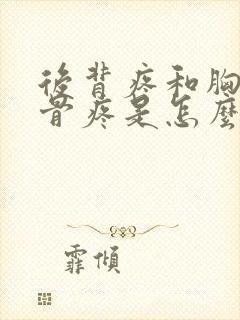 後背疼和胸
骨疼是怎麼
霏傾